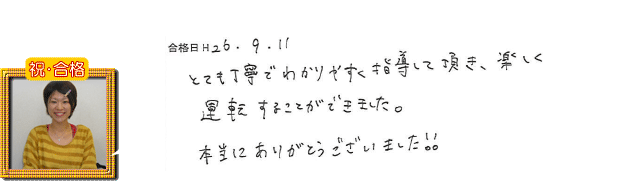 合格日 H26.9.11
とても丁寧でわかりやすく指導して頂き、楽しく
運転することができました。
本当にありがとうございました!!
祝・合格